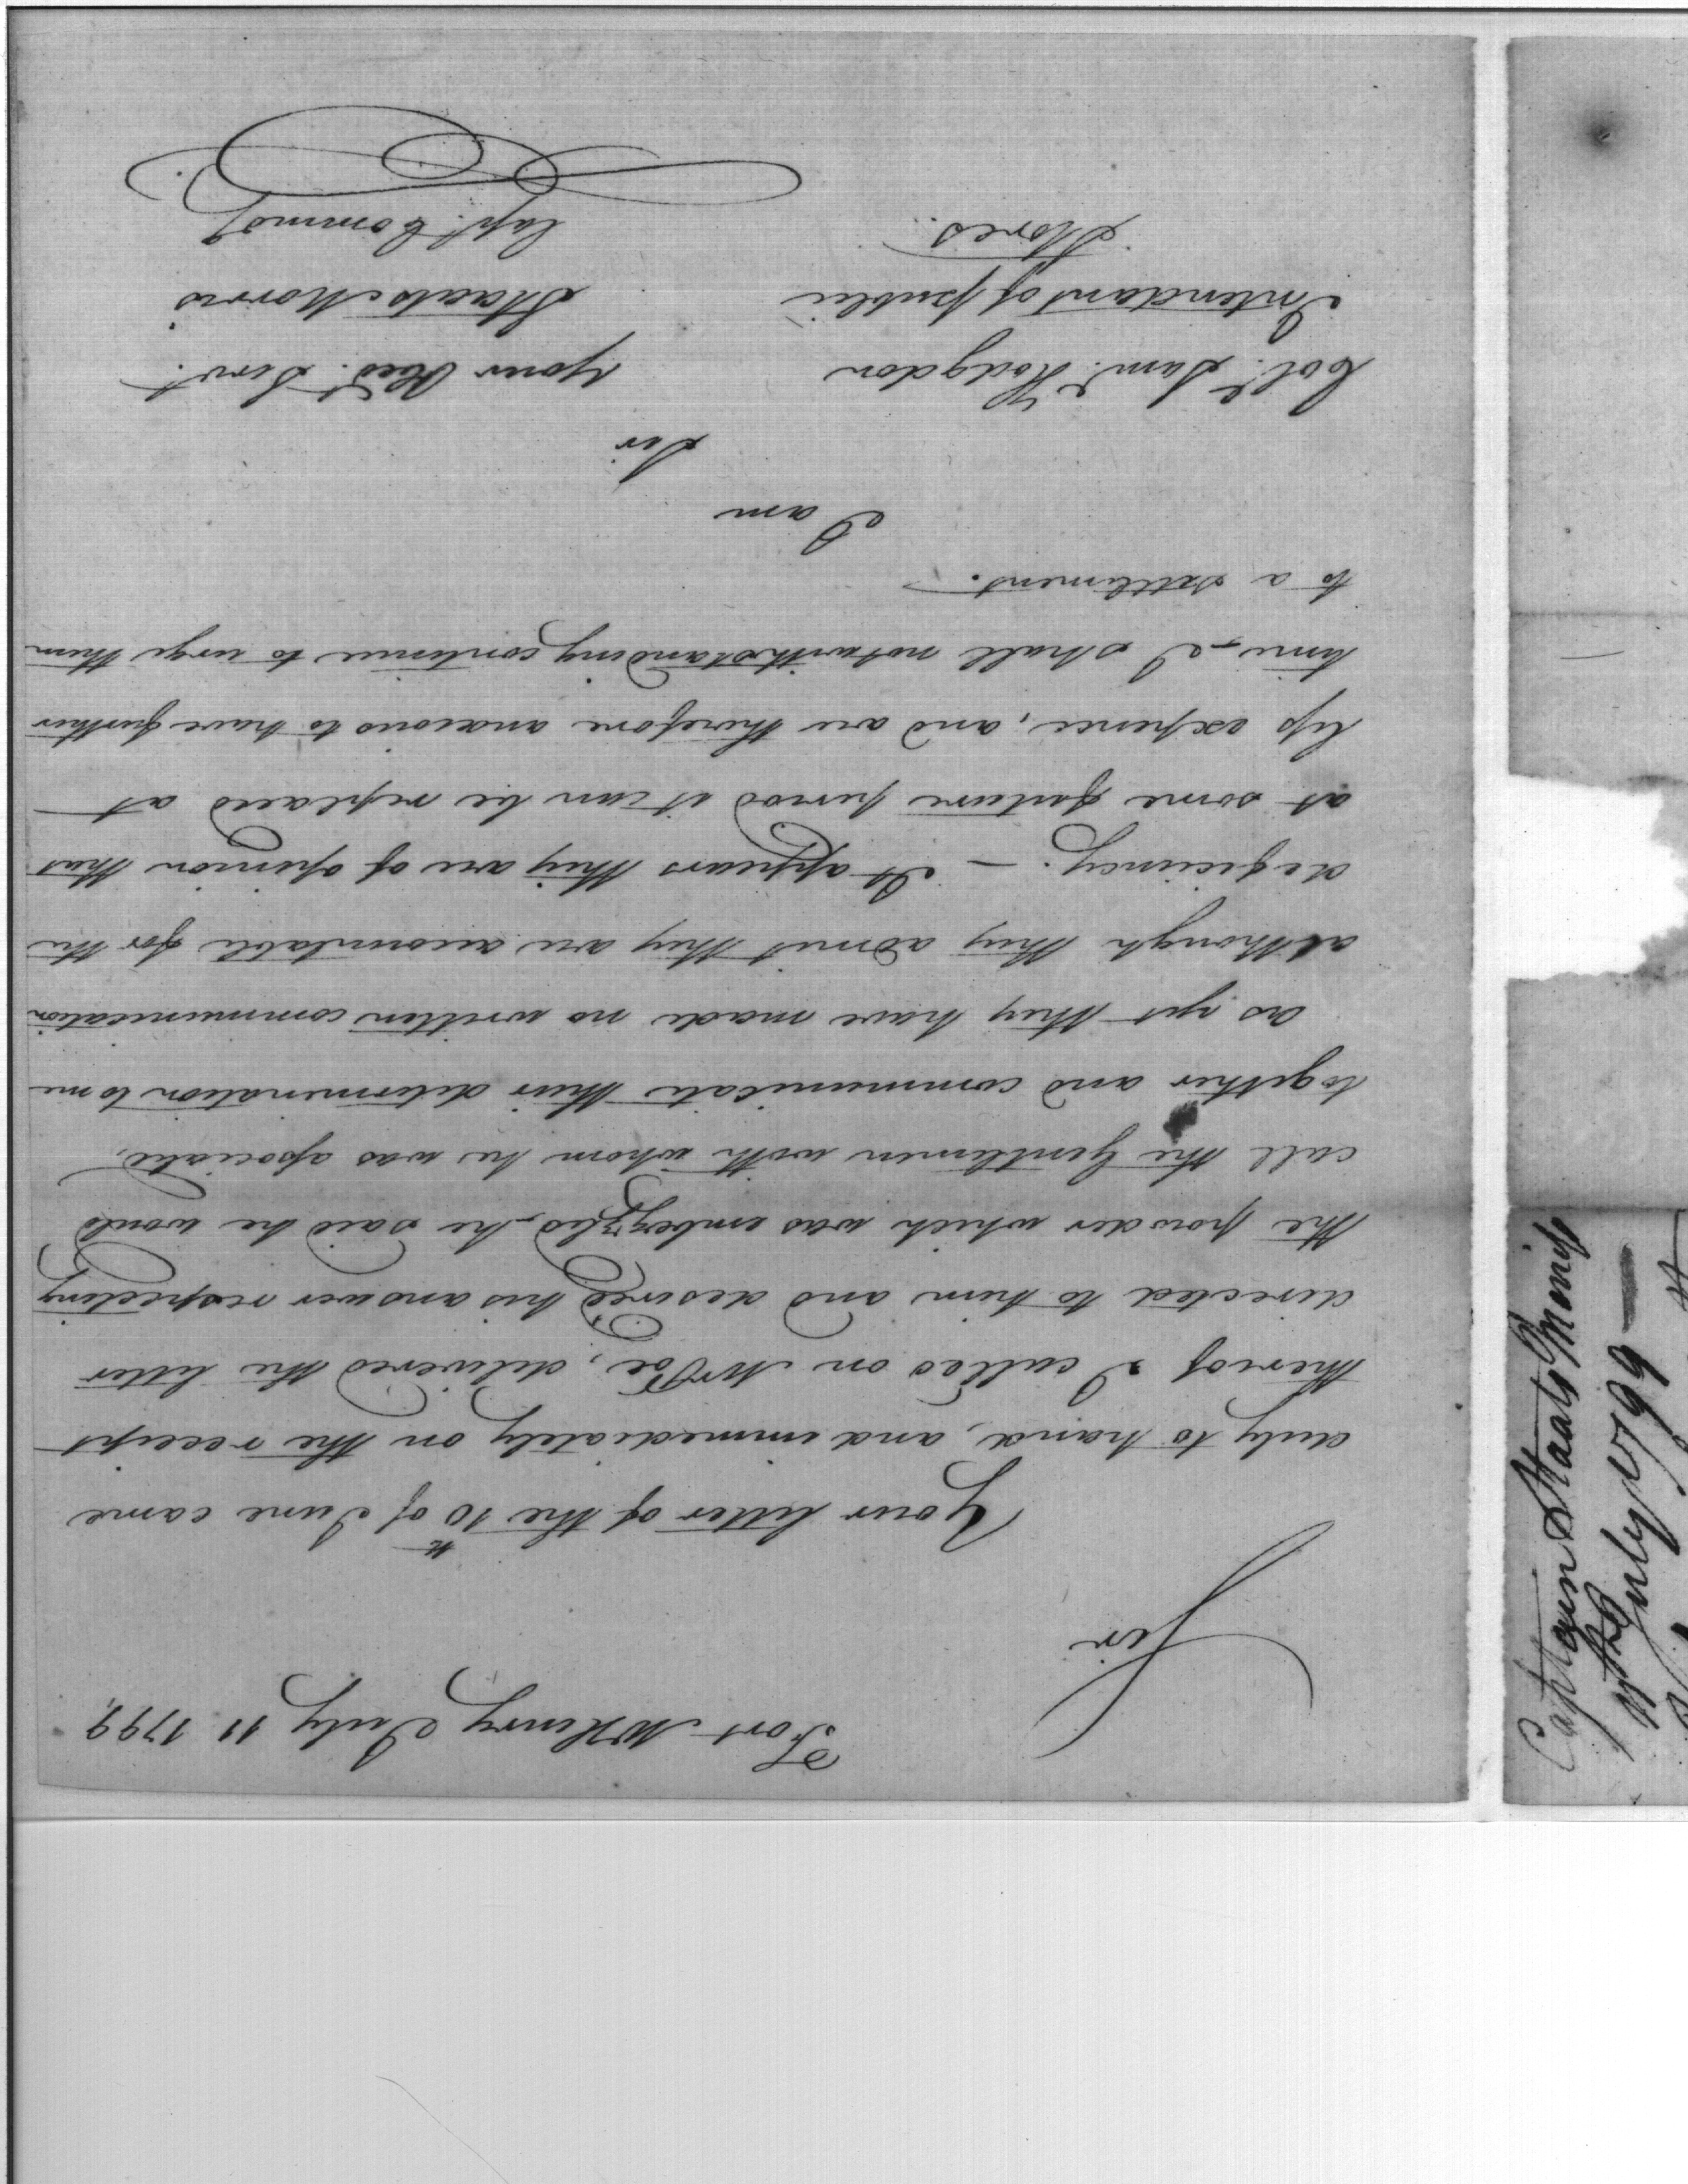 Fort McHenry July 11 1799,
Sir
Your letter of the 10th of June came
duly to hand, and immediately on the receipt
thereof I called on Mr Poe, delivered the letter
directed to him and desired his answer respecting
the powder which was embezzled, he said he would
call the Gentlemen with whom he was associated,
together and communicate their determination to me
as yet they have made no written communication
although they admit they are accountable for the
deficiency. — It appears they are of opinion that
at some future period it can be replaced at
less expence, and are therefore anxious to have further
time, I shall notwithstanding continue to urge them
to a settlement.
I am
Sir
your Obed. Servt.
Staats Morris
Capt. Commd
Col. Saml. Hodgdon
Intendant of public
Stores.
Captain Staats Morris
11th July 1799 —